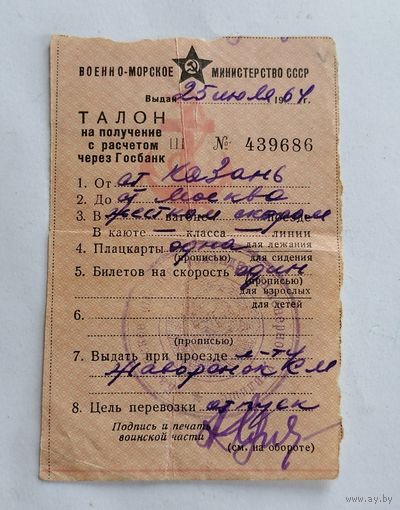 ВОЕННО-МОРСКОЕ МИНИСТЕРСТВО СССР
Выдан 25 июля 1964 г.
ТАЛОН
на получение
с расчетом
через Госбанк
III № 439686
1. От ст Казань
2. До ст Москва
3. В жестком вагоне скором поезде
В каюте — класса — линии
4. Плацкарты одна для лежания
(прописью) для сидения
5. Билетов на скорость один
(прописью)
для взрослых
для детей
6.
(прописью)
7. Выдать при проезде л-ту
Жаворонок К М
8. Цель перевозки отпуск
Подпись и печать
воинской части
(см. на обороте)
www.ay.by